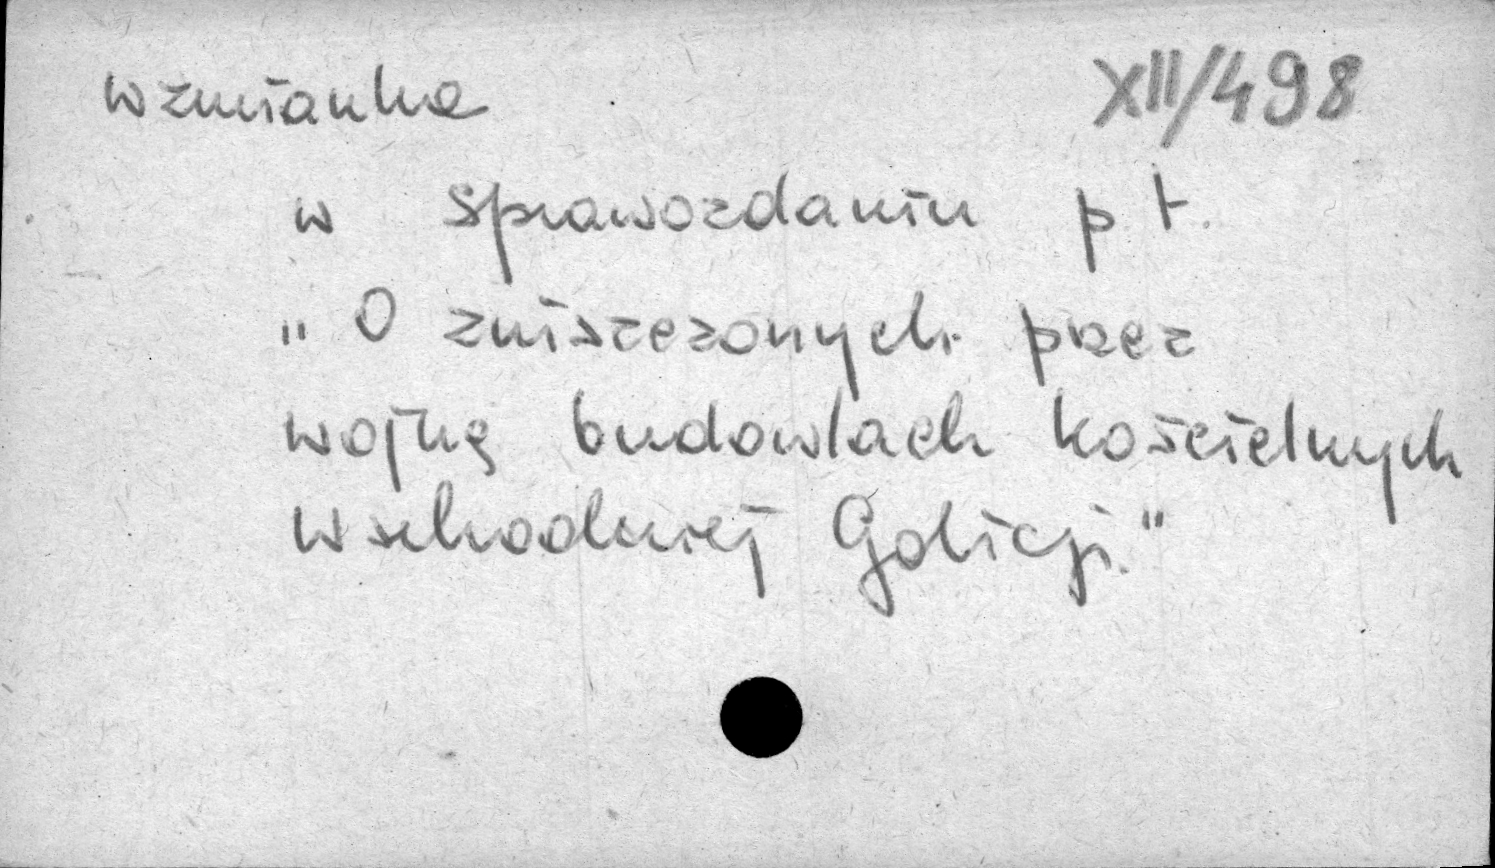 wzmianka XII/498
w sprawozdaniu p.t.
"O zniszczonych przez
wojnę budowlach kościelnych
wschodniej Galicji."